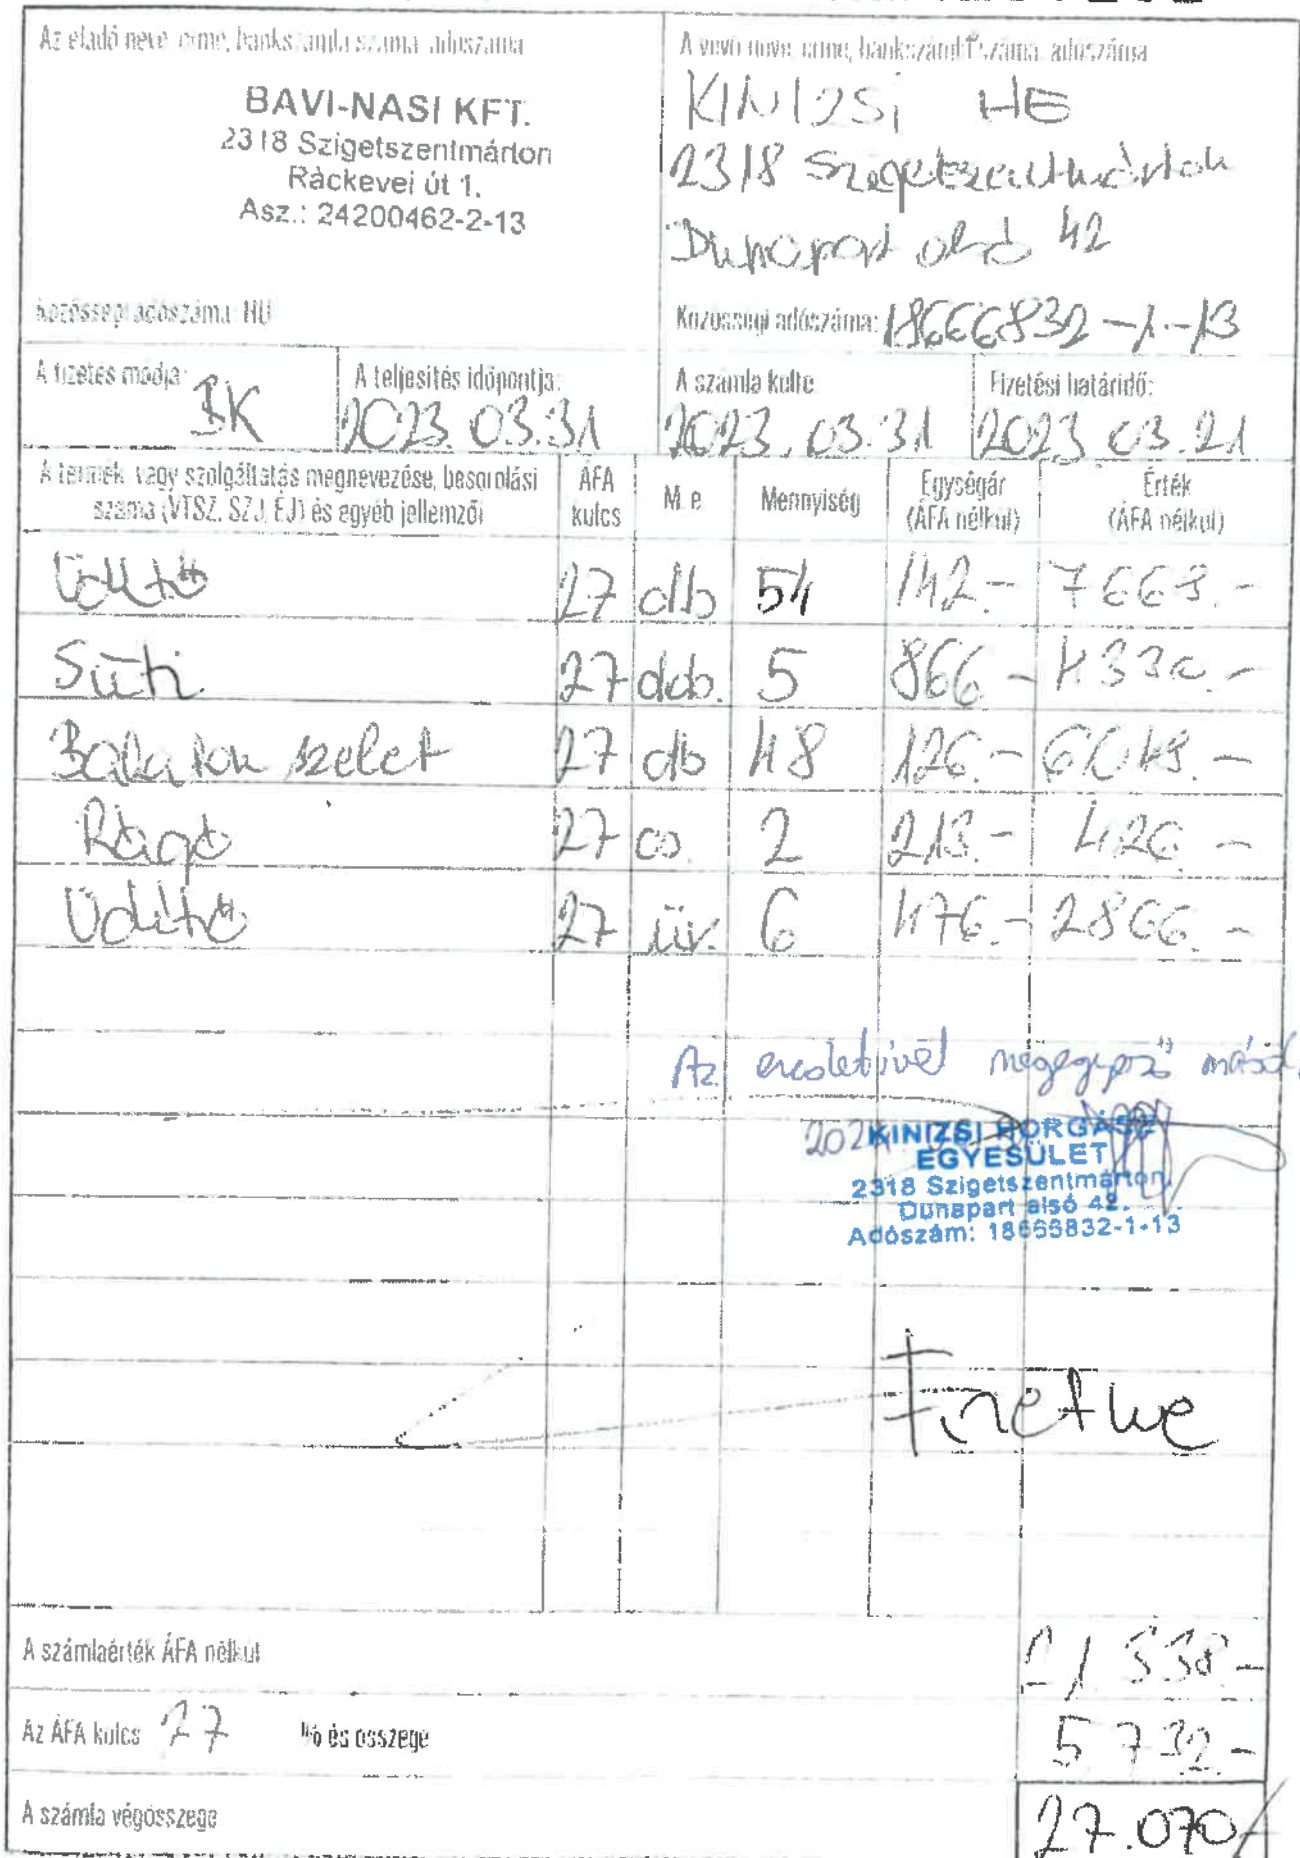 Az eladó neve, címe, bankszámla száma, adószáma
BAVI-NASI KFT.
2318 Szigetszentmárton
Ráckevei út 1.
Asz.: 24200462-2-13
Közösségi adószáma: HU
A vevő neve, címe, bankszámla száma, adószáma
KINIZSI HE
2318 Szigetszentmárton
Dunapart alsó 42
Közösségi adószáma: 18666832-1-13
A fizetés módja: BK
A teljesítés időpontja: 2023.03.31
A számla kelte 2023.03.31
Fizetési határidő: 2023.03.21
A termék vagy szolgáltatás megnevezése, besorolási száma (VTSZ, SZJ, ÉJ) és egyéb jellemzői ÁFA kulcs M. e. Mennyiség Egységár (ÁFA nélkül) Érték (ÁFA nélkül)
Üdítő 27 db 54 142.- 7668.-
Süti 27 dob. 5 866.- 4330.-
Balaton szelet 27 db 48 126.- 6048.-
Rágó 27 cs. 2 213.- 426.-
Üdítő 27 üv. 6 476.- 2866.-
Az eredetivel megegyező
KINIZSI HORGÁSZ
EGYESÜLET
2318 Szigetszentmárton,
Dunapart alsó 42.
Adószám: 18666832-1-13
Fizetve
A számlaérték ÁFA nélkül 21 338-
Az ÁFA kulcs 27 % és összege 5 732-
A számla végösszege 27.070